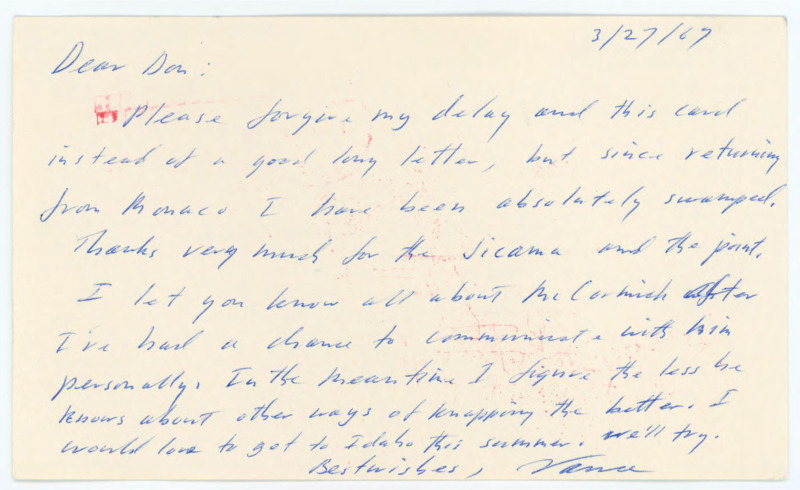 3/27/69
Dear Don:
Please forgive my delay and this card
instead of a good long letter, but since returning
from Monaco I have been absolutely swamped.
Thanks very much for the Jicama and the point.
I let you know all about McCormick after
I've had a chance to communicate with him
personally. In the meantime I figure the less he
knows about other ways of knapping the better. I
would love to get to Idaho this summer. We'll try.
Best wishes, Vance